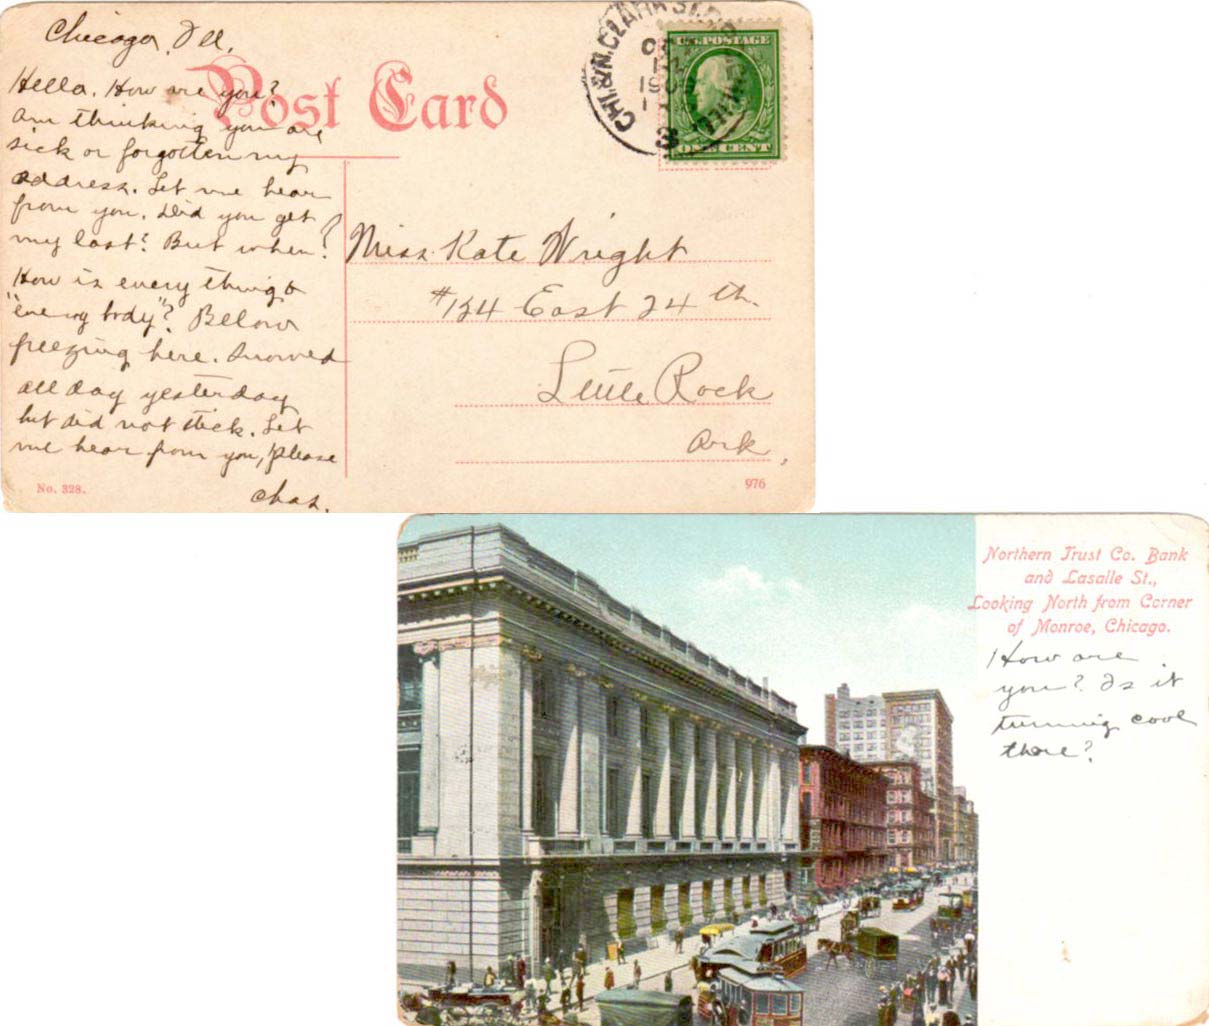 Chicago, Ill.
Post Card
Hello. How are you?
Am thinking you are
sick or forgotten my
address. Let me hear
from you. Did you get
my last? But when?
How is everything &
"every body"? Below
freezing here. Snowed
all day yesterday
but did not stick. Let
me hear from you, please
Chas.
No. 328.
CHI. & N. CLARK ST. R.P.O.
1909
3
U.S. POSTAGE
ONE CENT
Miss Kate Wright
#124 East 24th.
Little Rock
Ark,
976
Northern Trust Co. Bank
and Lasalle St.,
Looking North from Corner
of Monroe, Chicago.
How are
you? Is it
turning cool
there?